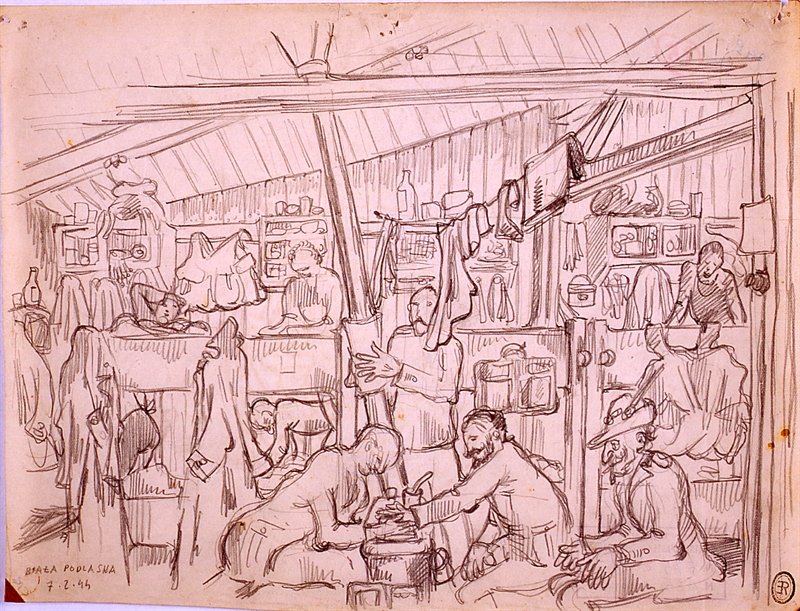 BIAŁA PODLASKA
7.2.44